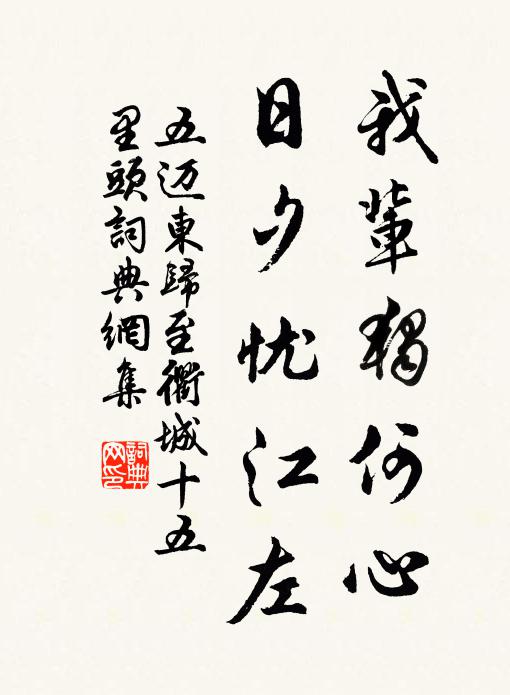 我輩獨何心
日夕忧江左
五迈東歸至衢城十五
里頭詞典網集
詞典网印